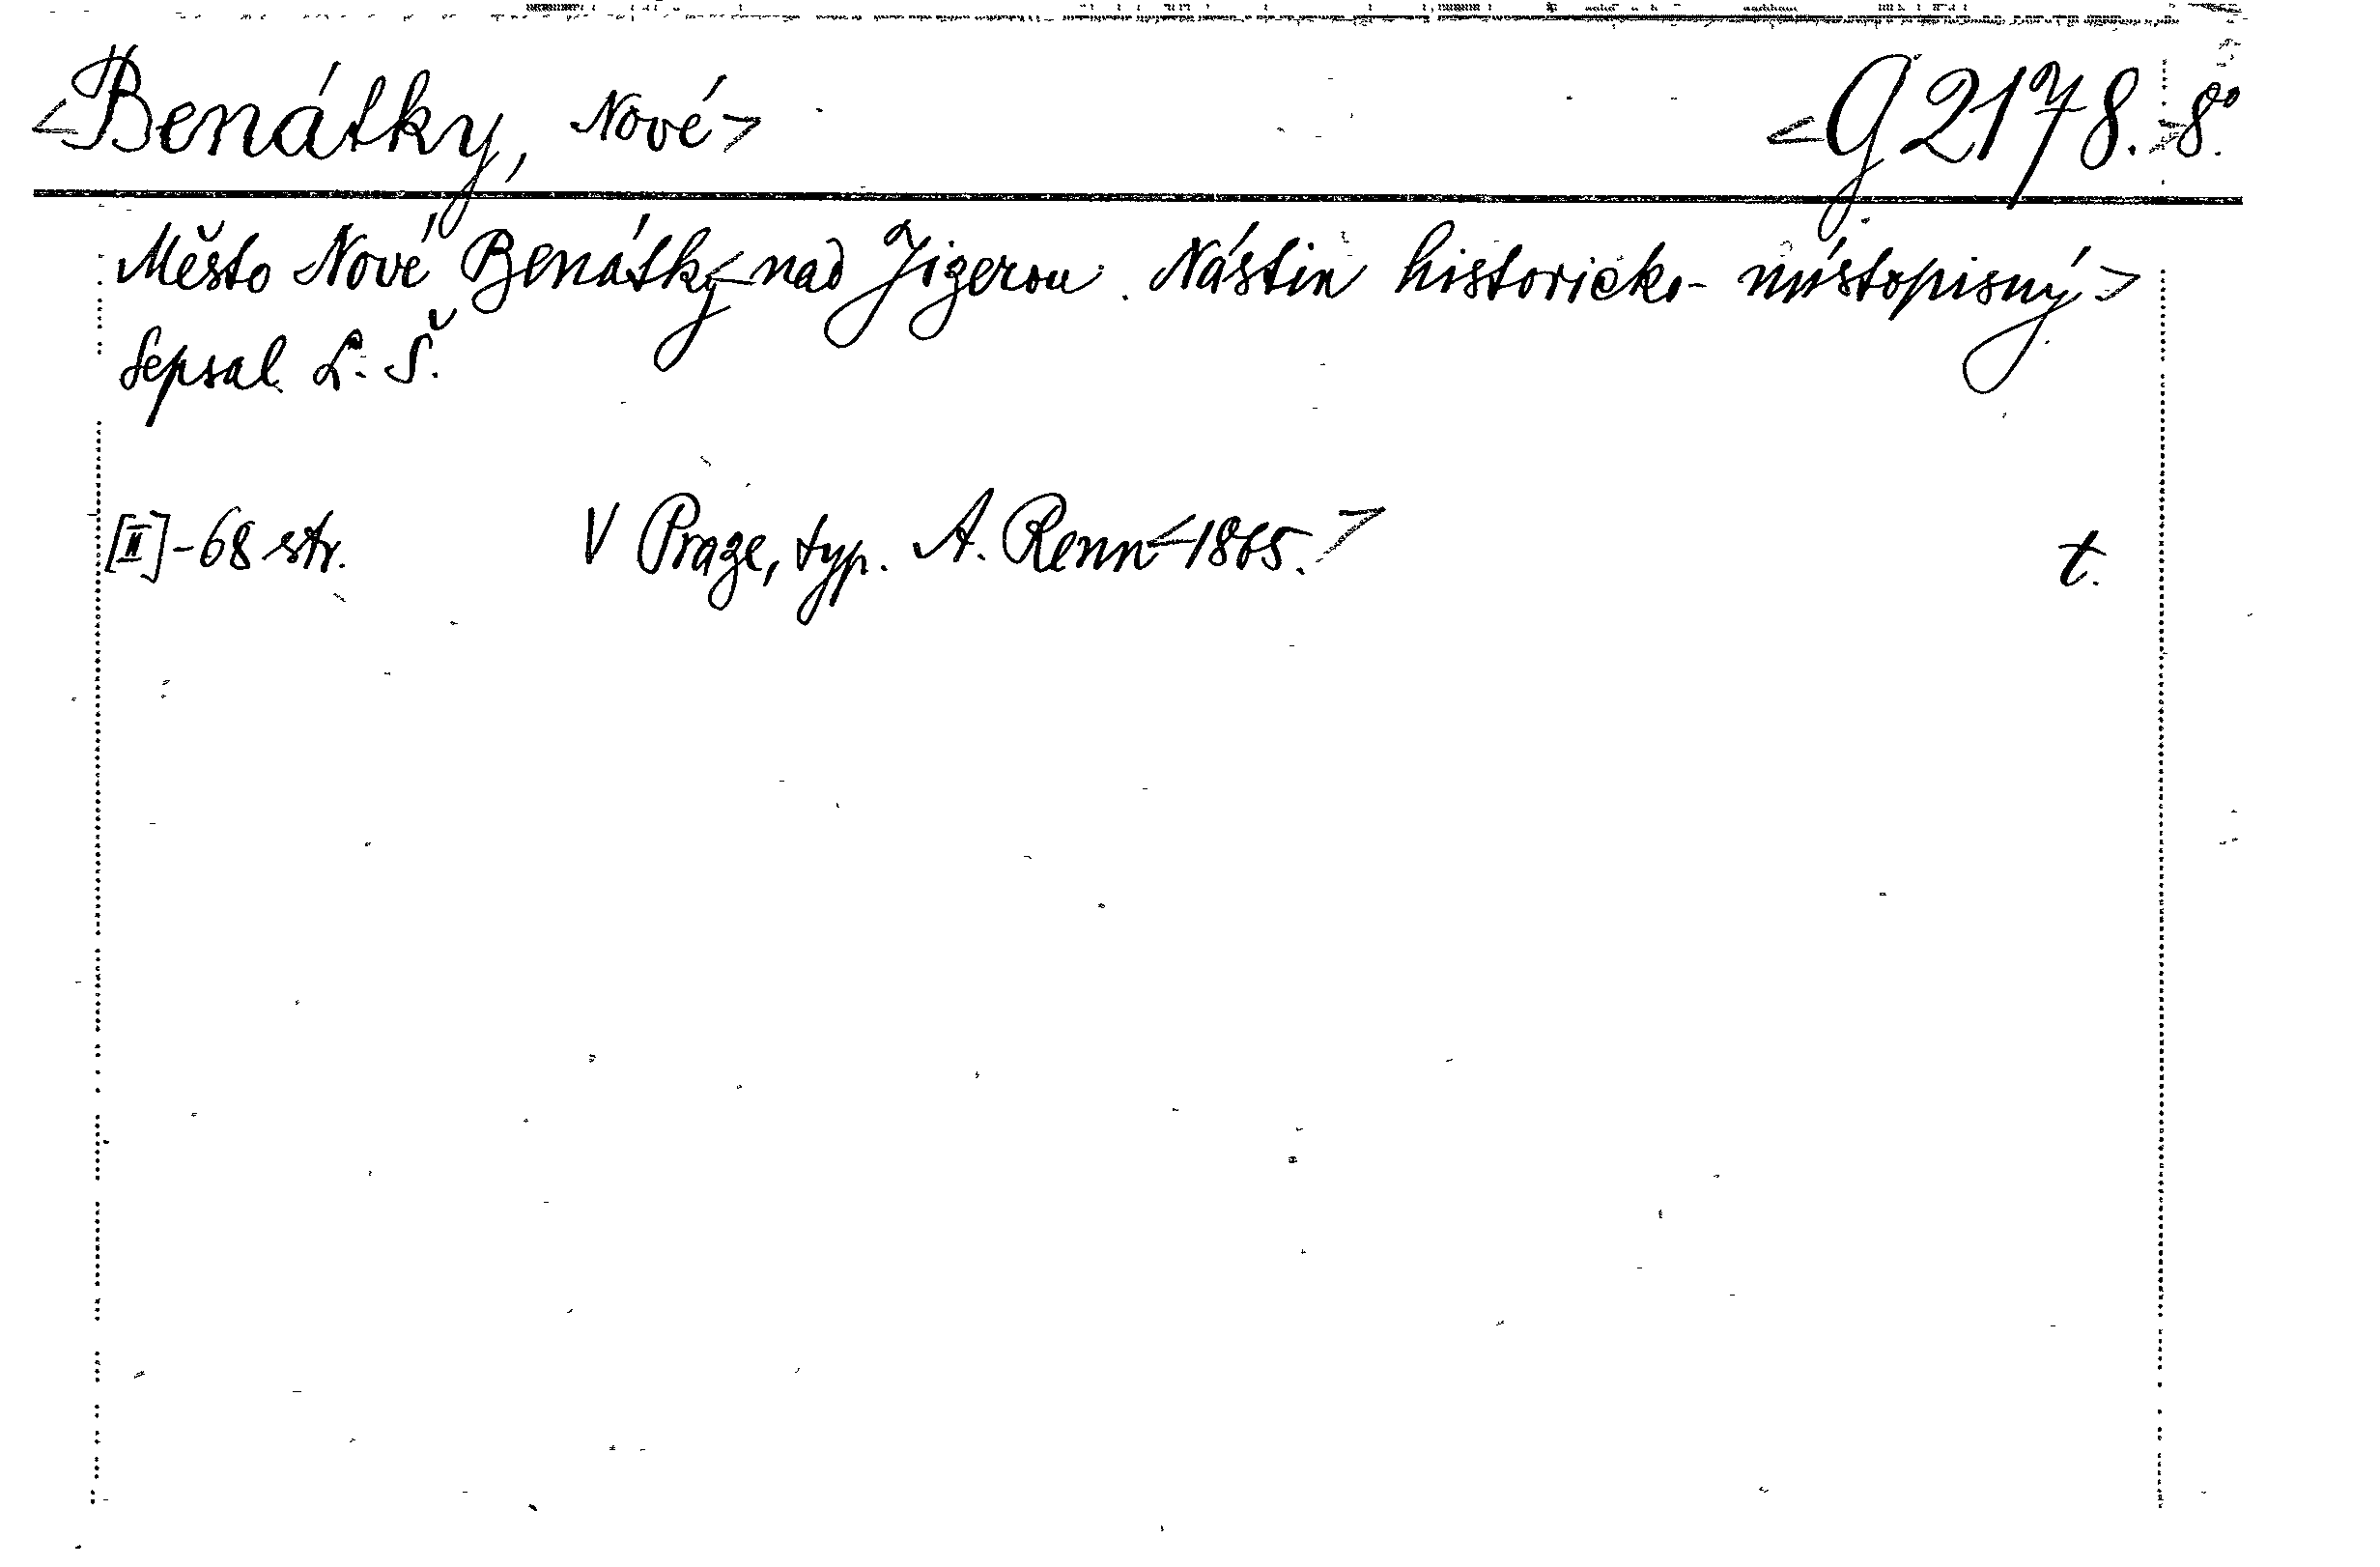 <Benátky, Nové> <G 2178.> 8°.
Město Nové Benátky <nad Jizerou. Nástin historicko-místopisný>
Sepsal L. Š.
[II]-68 str. V Praze, typ. A. Renn <1865.> t.